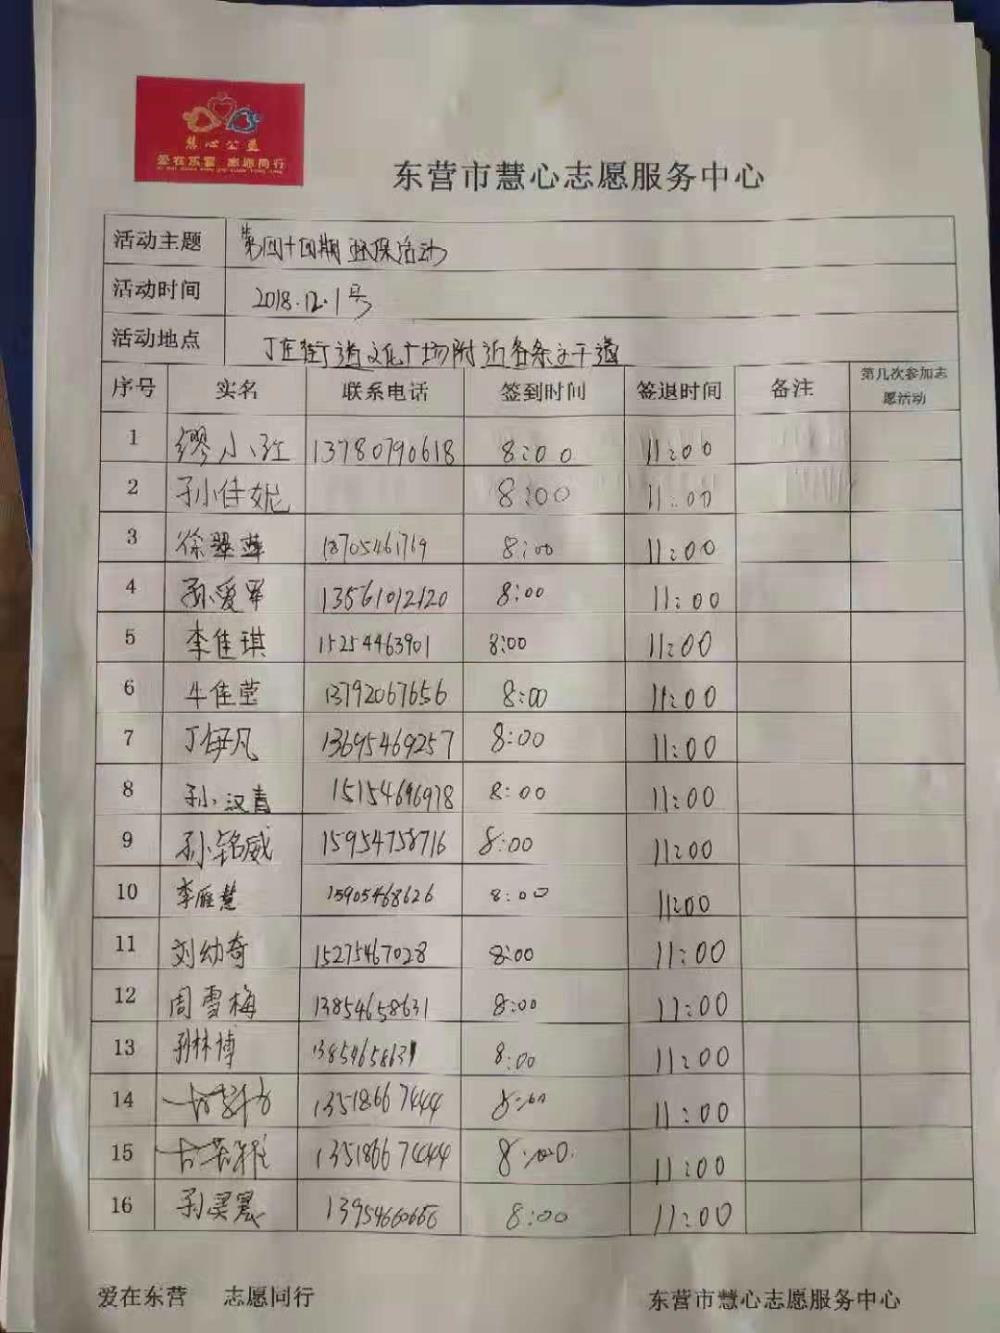 慧心公益
爱在东营 志愿同行
东营市慧心志愿服务中心
活动主题 第四十四期环保活动
活动时间 2018.12.1号
活动地点 丁庄街道文化广场附近各条主干道
序号 实名 联系电话 签到时间 签退时间 备注 第几次参加志愿活动
1 缪小红 13780790618 8:00 11:00
2 孙佳妮 8:00 11:00
3 徐翠萍 18705461719 8:00 11:00
4 孙爱军 13561012120 8:00 11:00
5 李佳琪 15254463901 8:00 11:00
6 牛佳莹 13792067656 8:00 11:00
7 丁伊凡 13695469257 8:00 11:00
8 孙汉青 15154696978 8:00 11:00
9 孙铭威 15954758716 8:00 11:00
10 李雁慧 15905468626 8:00 11:00
11 刘幼奇 15275467028 8:00 11:00
12 周雪梅 13854658631 8:00 11:00
13 孙林博 13854658631 8:00 11:00
14 13518667444 8:00 11:00
15 13518667444 8:00 11:00
16 孙昊晟 13954660666 8:00 11:00
爱在东营 志愿同行 东营市慧心志愿服务中心